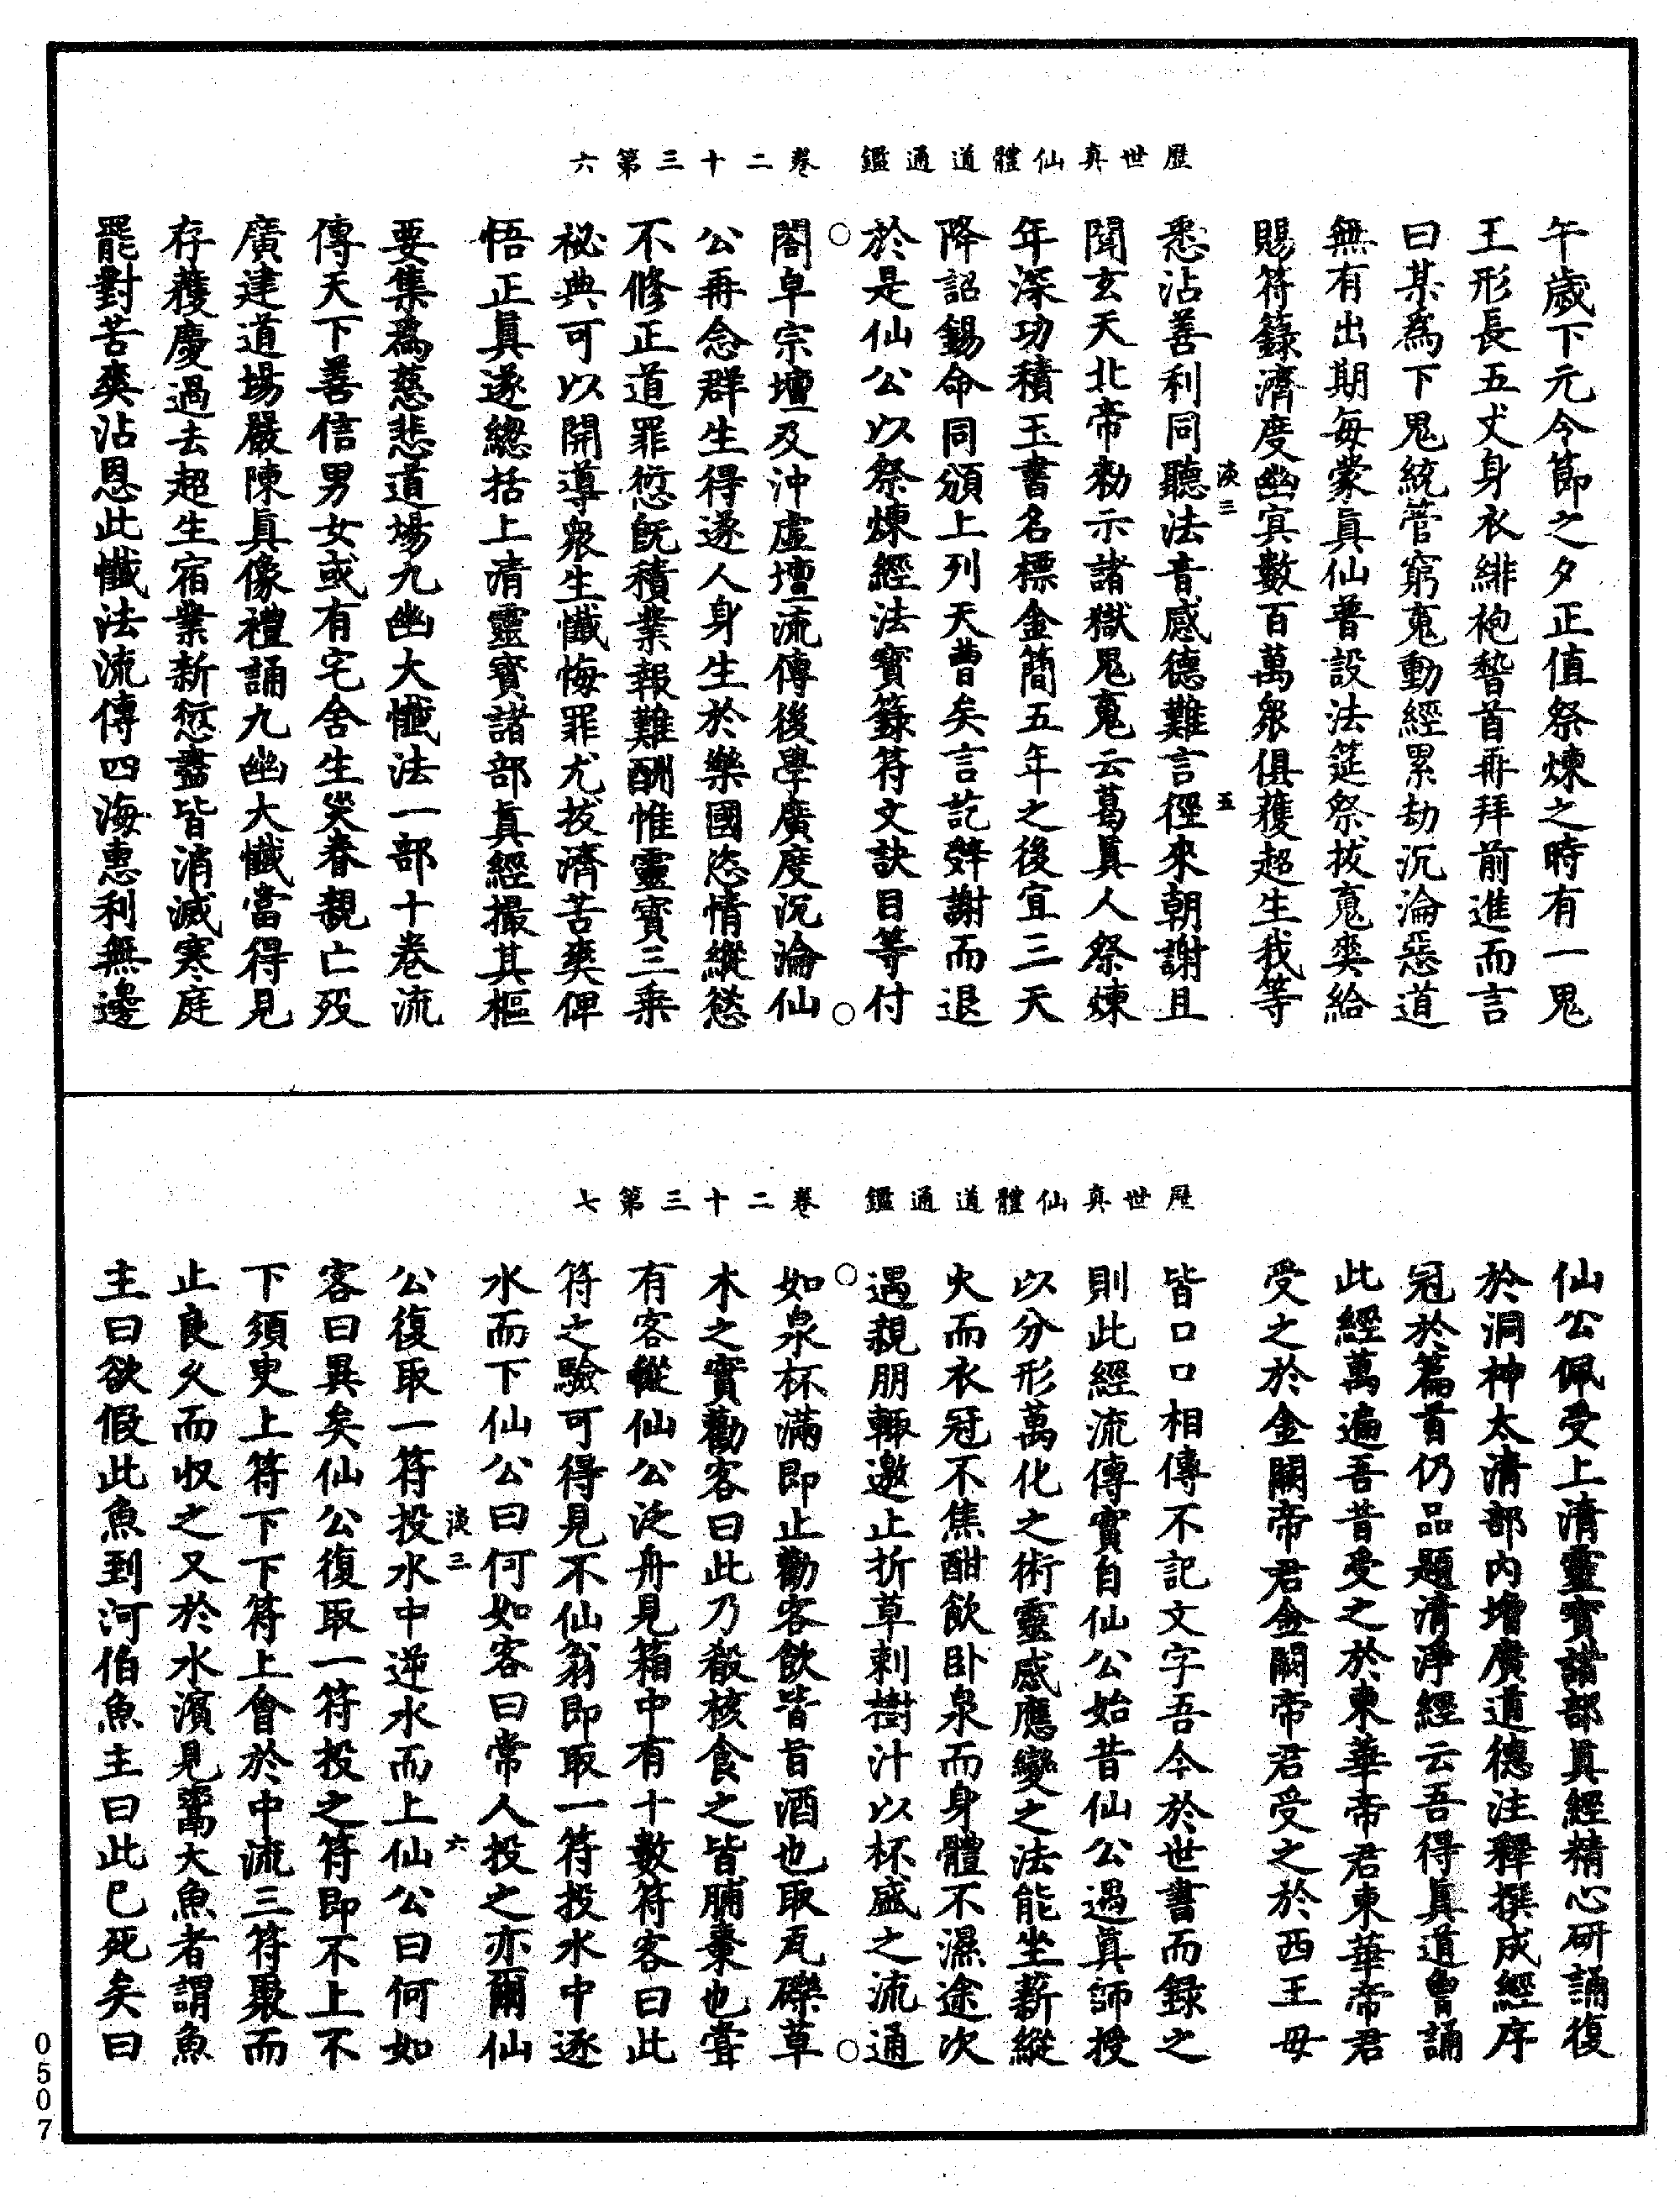 歷世真仙體道通鑑　卷二十三第六
午歲下元令節之夕正值祭煉之時有一鬼
王形長五丈身衣緋袍稽首再拜前進而言
曰某為下鬼統管窮䰟動經累劫沉淪惡道
無有出期每蒙真仙普設法筵祭拔䰟爽給
賜符籙濟度幽冥數百萬衆俱獲超生我等
淡三　五
悉沾善利同聽法音感德難言徑來朝謝且
聞玄天北帝勑示諸獄鬼䰟云葛真人祭煉
年深功積玉書名標金簡五年之後宜三天
降詔錫命同頒上列天曹矣言訖辤謝而退
於是仙公以祭煉經法寶籙符文訣目等付
○　○
閤皁宗壇及沖虛壇流傳後學廣度沉淪仙
公再念群生得遂人身生於樂國恣情縱慾
不修正道罪愆旣積業報難酬惟靈寶三乗
祕典可以開導衆生懺悔罪尤拔濟苦爽俾
悟正真遂總括上清靈寶諸部真經撮其樞
要集為慈悲道場九幽大懺法一部十卷流
傳天下善信男女或有宅舍生災眷親亡歿
廣建道場嚴陳真像禮誦九幽大懺當得見
存獲慶過去超生宿業新愆盡皆消滅寒庭
罷對苦爽沾恩此懺法流傳四海惠利無邊
歷世真仙體道通鑑　卷二十三第七
仙公佩受上清靈寶諸部真經精心研誦復
於洞神太清部內增廣道德注釋撰成經序
冠於篇首仍品題清淨經云吾得真道曾誦
此經萬遍吾昔受之於東華帝君東華帝君
受之於金闕帝君金闕帝君受之於西王母
皆口口相傳不記文字吾今於世書而錄之
則此經流傳實自仙公始昔仙公遇真師授
以分形萬化之術靈感應變之法能坐薪縱
火而衣冠不焦酣飲卧泉而身體不濕途次
遇親朋輙邀止折草刺樹汁以杯盛之流通
○　○
如泉杯滿即止勸客飲皆旨酒也取瓦礫草
木之實勸客曰此乃殽核食之皆脯棗也甞
有客從仙公泛舟見箱中有十數符客曰此
符之驗可得見不仙翁即取一符投水中逐
水而下仙公曰何如客曰常人投之亦爾仙
淡三　六
公復取一符投水中逆水而上仙公曰何如
客曰異矣仙公復取一符投之符即不上不
下須臾上符下下符上會於中流三符聚而
止良久而收之又於水濱見鬻大魚者謂魚
主曰欲假此魚到河伯魚主曰此已死矣曰
0507